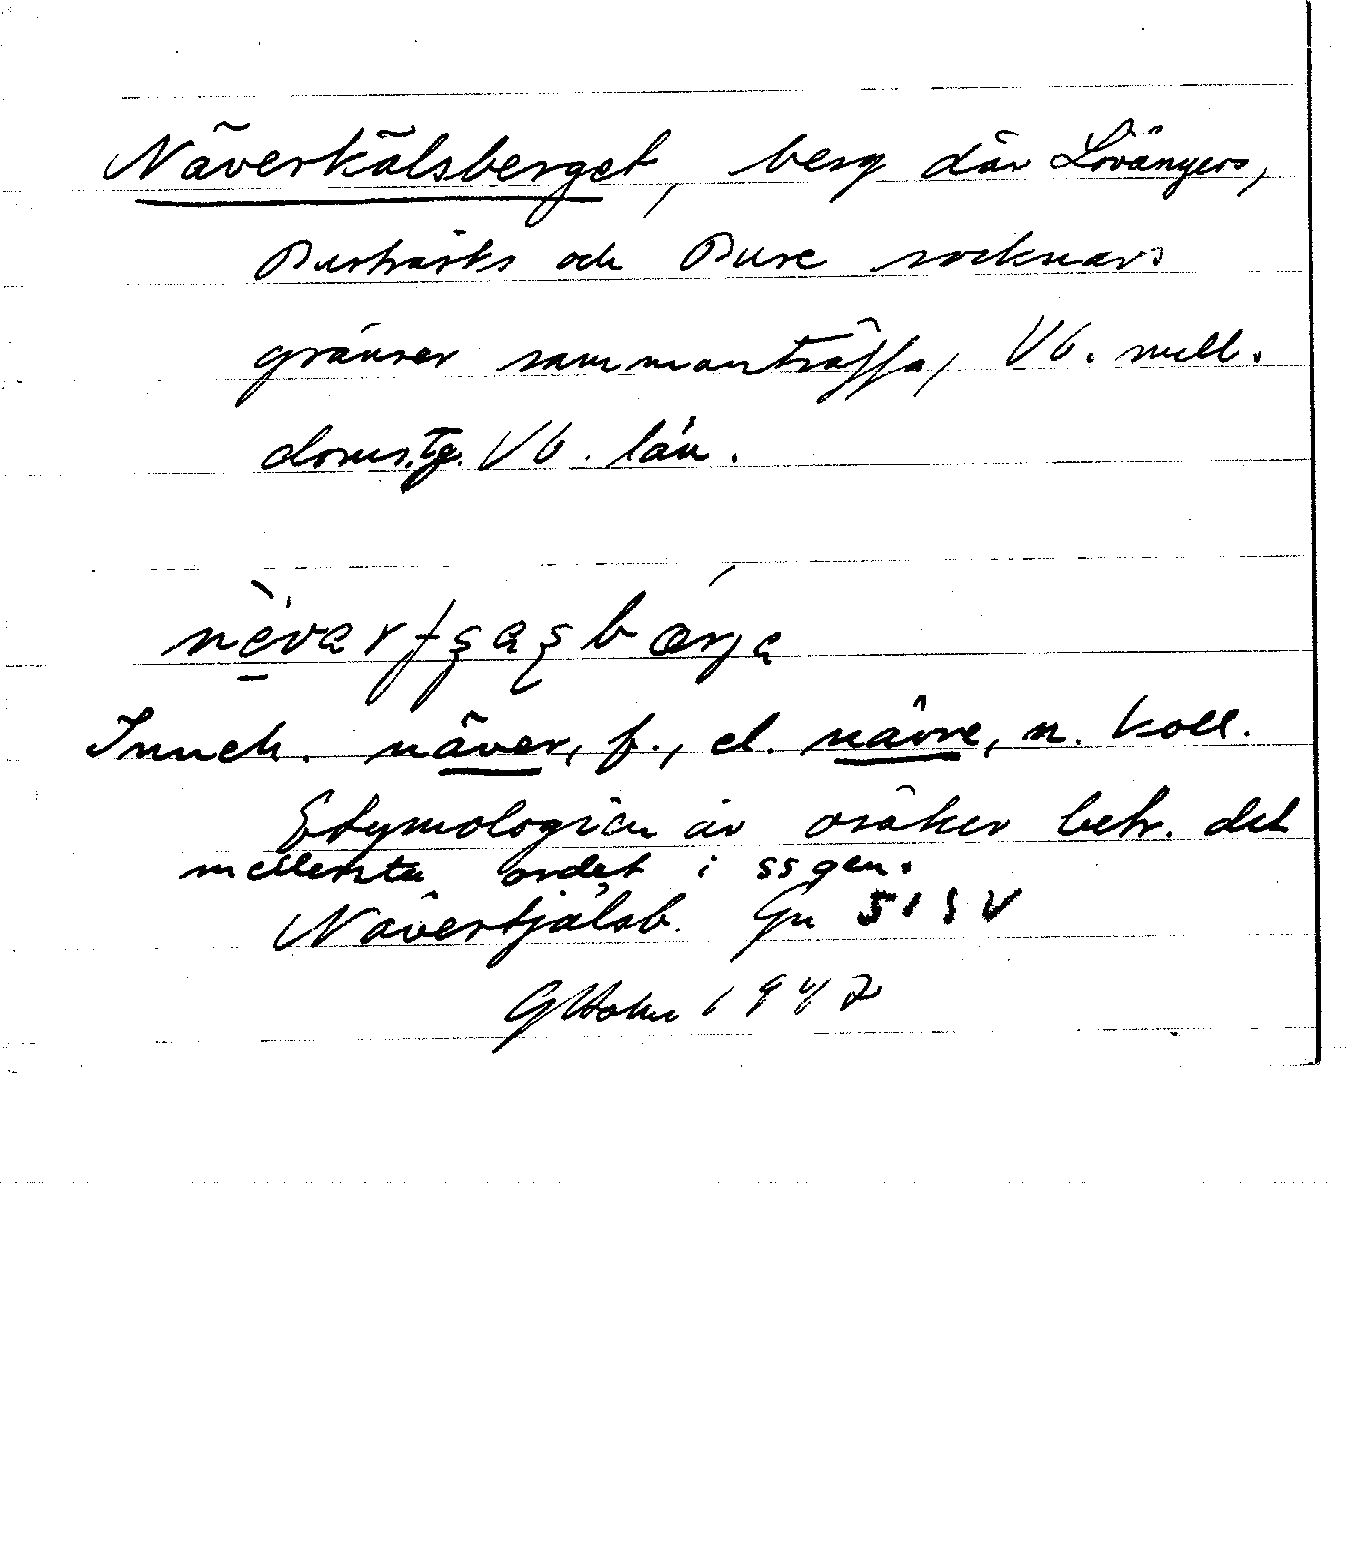 Näverkälsberget, berg där Lövångers,
Burträsks och Bure socknars
gränser sammanträffa, Vb. mell.
doms.tg. Vb. län.
Inneh. näver, f., el. nävre, n. koll.
Etymologien är osäker betr. det
mellersta ordet i ssgen.
Näverkjälsb. Gn 51 S V
1947